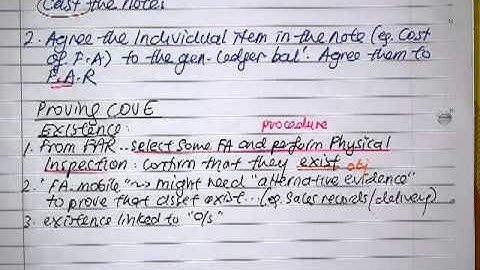 Cast the notes
2. Agree the Individual item in the note (eg. Cost
of F.A) to the gen. Ledger bal'. Agree them to
F.A.R
Proving COVE
Existence:
procedure
1. From FAR.. select some FA and perform Physical
Inspection: confirm that they exist obj
2. "FA. mobile" ~> might need "alternative evidence"
to prove that asset exist... (eg. sales records/delivery)
3. existence linked to "O/S"